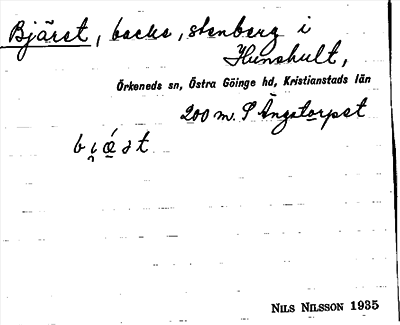 Bjärst, backe, stenberg i
Hunshult,
Örkeneds sn, Östra Göinge hd, Kristianstads län
200 m. S Ängstorpet
NILS NILSSON 1935